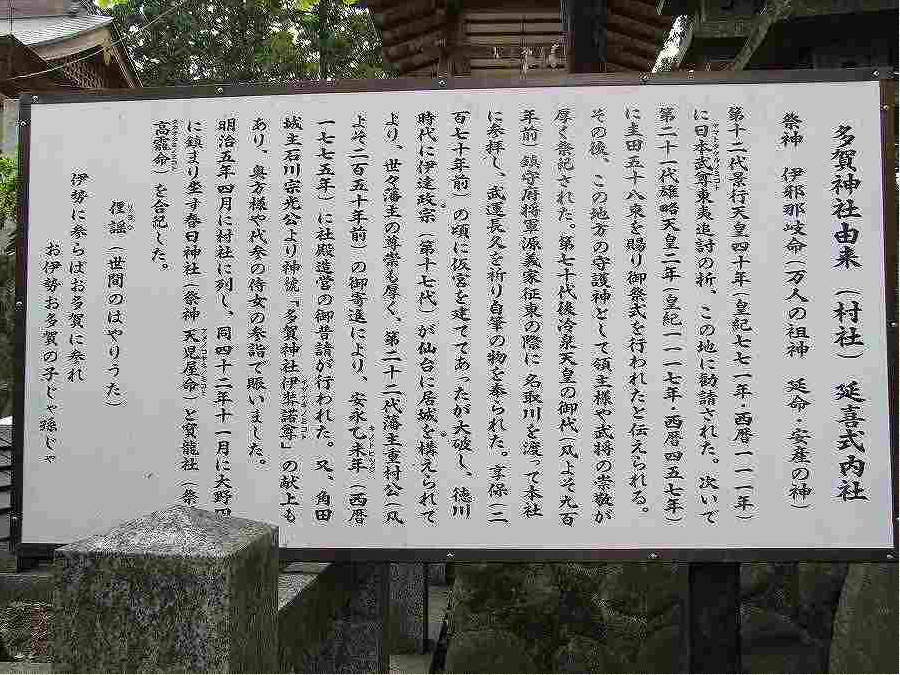 多賀神社由来（村社）　延喜式内社
祭神　伊邪那岐命（万人の祖神　延命・安産の神）
第十二代景行天皇四十年（皇紀七七一年・西暦一一一年）
に日本武尊東夷追討の折、この地に勧請された。次いで
第二十一代雄略天皇二年（皇紀一一一七年・西暦四五七年）
に圭田五十八束を賜り御祭式を行われたと伝えられる。
その後、この地方の守護神として領主様や武将の崇敬が
厚く祭祀された。第七十代後冷泉天皇の御代（凡よそ九百
年前）鎮守府将軍源義家征東の際に名取川を渡って本社
に参拝し、武運長久を祈り自筆の物を奉られた。享保（二
百七十年前）の頃に仮宮を建ててあったが大破し、徳川
時代に伊達政宗（第十七代）が仙台に居城を構えられて
より、世々藩主の尊崇も厚く、第二十二代藩主重村公（凡
よそ二百五十年前）の御寄進により、安永乙未年（西暦
一七七五年）に社殿造営の御普請が行われた。又、角田
城主石川宗光公より神號「多賀神社伊弉諾尊」の献上も
あり、奥方様や代参の侍女の参詣で賑いました。
明治五年四月に村社に列し、同四十二年十一月に大野田
に鎮まり坐す春日神社（祭神 天児屋命）と寳龍社（祭
高龗命）を合祀した。
俚謡（世間のはやりうた）
伊勢に参らばお多賀に参れ
お伊勢お多賀の子じゃ孫じゃ